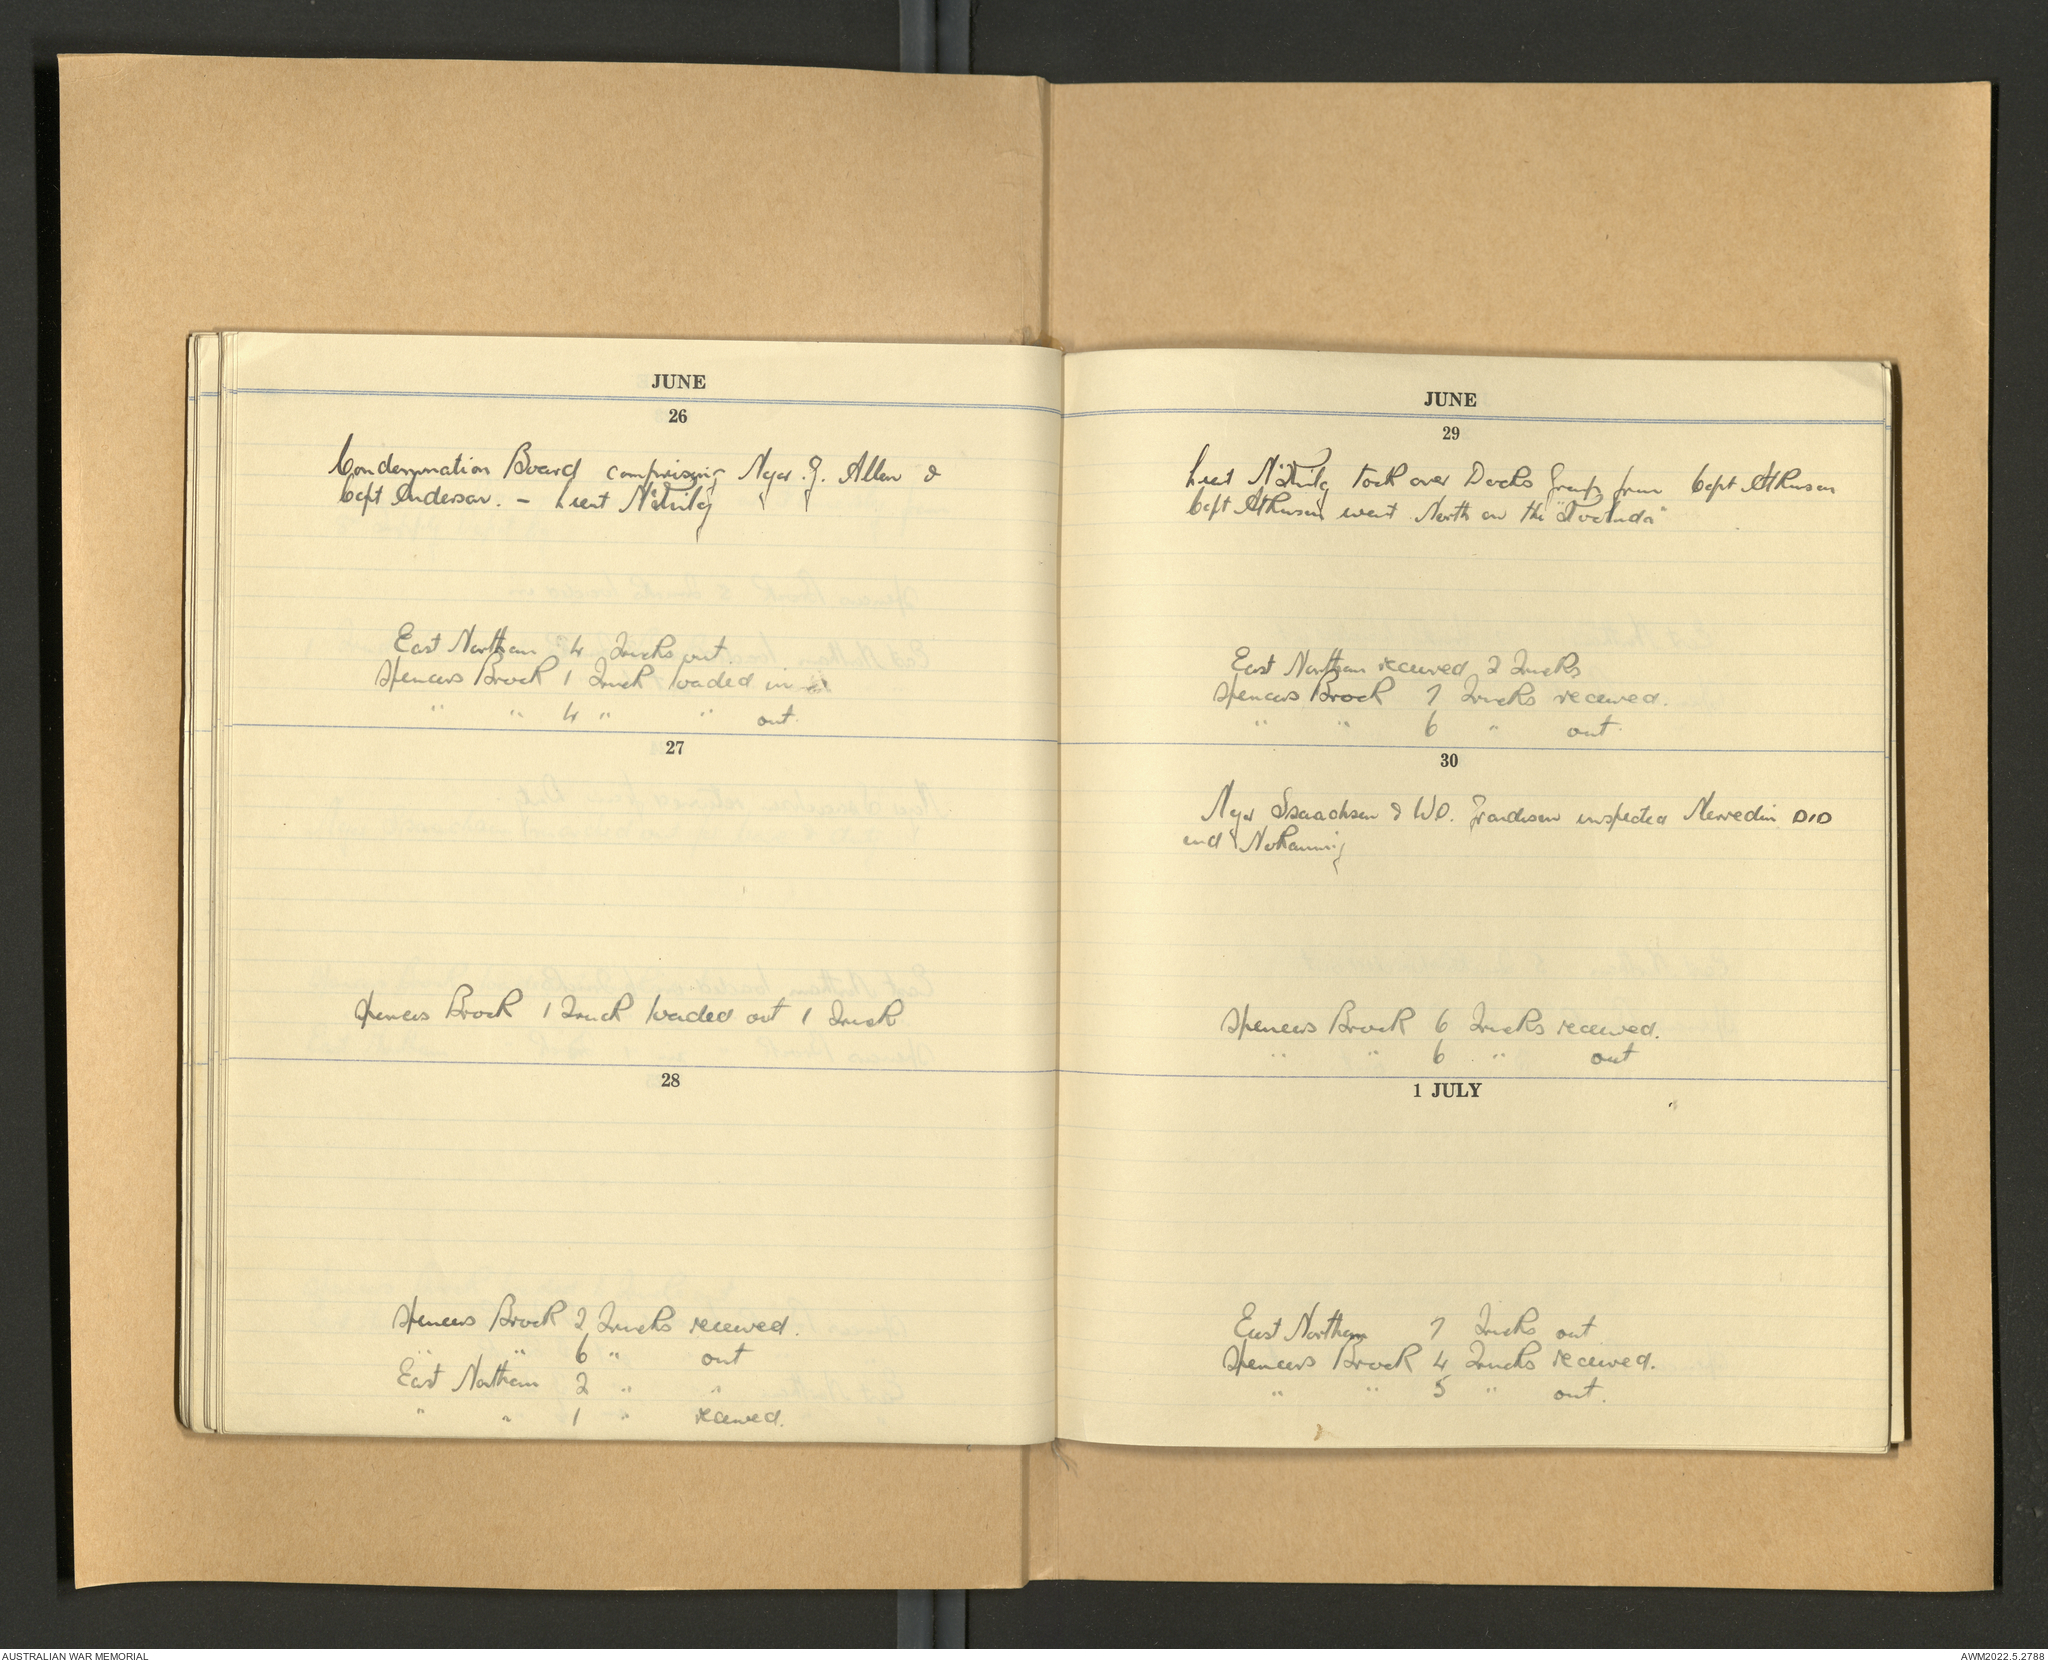 JUNE
26
Condemnation Board comprising Major G. Allen &
Capt Anderson. - Lieut
East Northam 4 Trucks out.
Spencers Brook 1 Truck loaded in
" " 4 " " out.
27
Spencers Brook 1 Truck loaded out 1 Truck
28
Spencers Brook 2 Trucks received.
" " 6 " out
East Northam 2 " "
" " 1 " received.
JUNE
29
Lieut took over Docks Group from Capt Atkinson
Capt Atkinson went North on the
East Northam received 2 Trucks
Spencers Brook 7 Trucks received.
" " 6 " out.
30
Major Isaachsen & WO. Grandison inspected Merredin DID
and Nokaning
Spencers Brook 6 Trucks received.
" " 6 " out
1 JULY
East Northam 7 Trucks out
Spencers Brook 4 Trucks received.
" " 5 " out.
AUSTRALIAN WAR MEMORIAL
AWM2022.5.2788